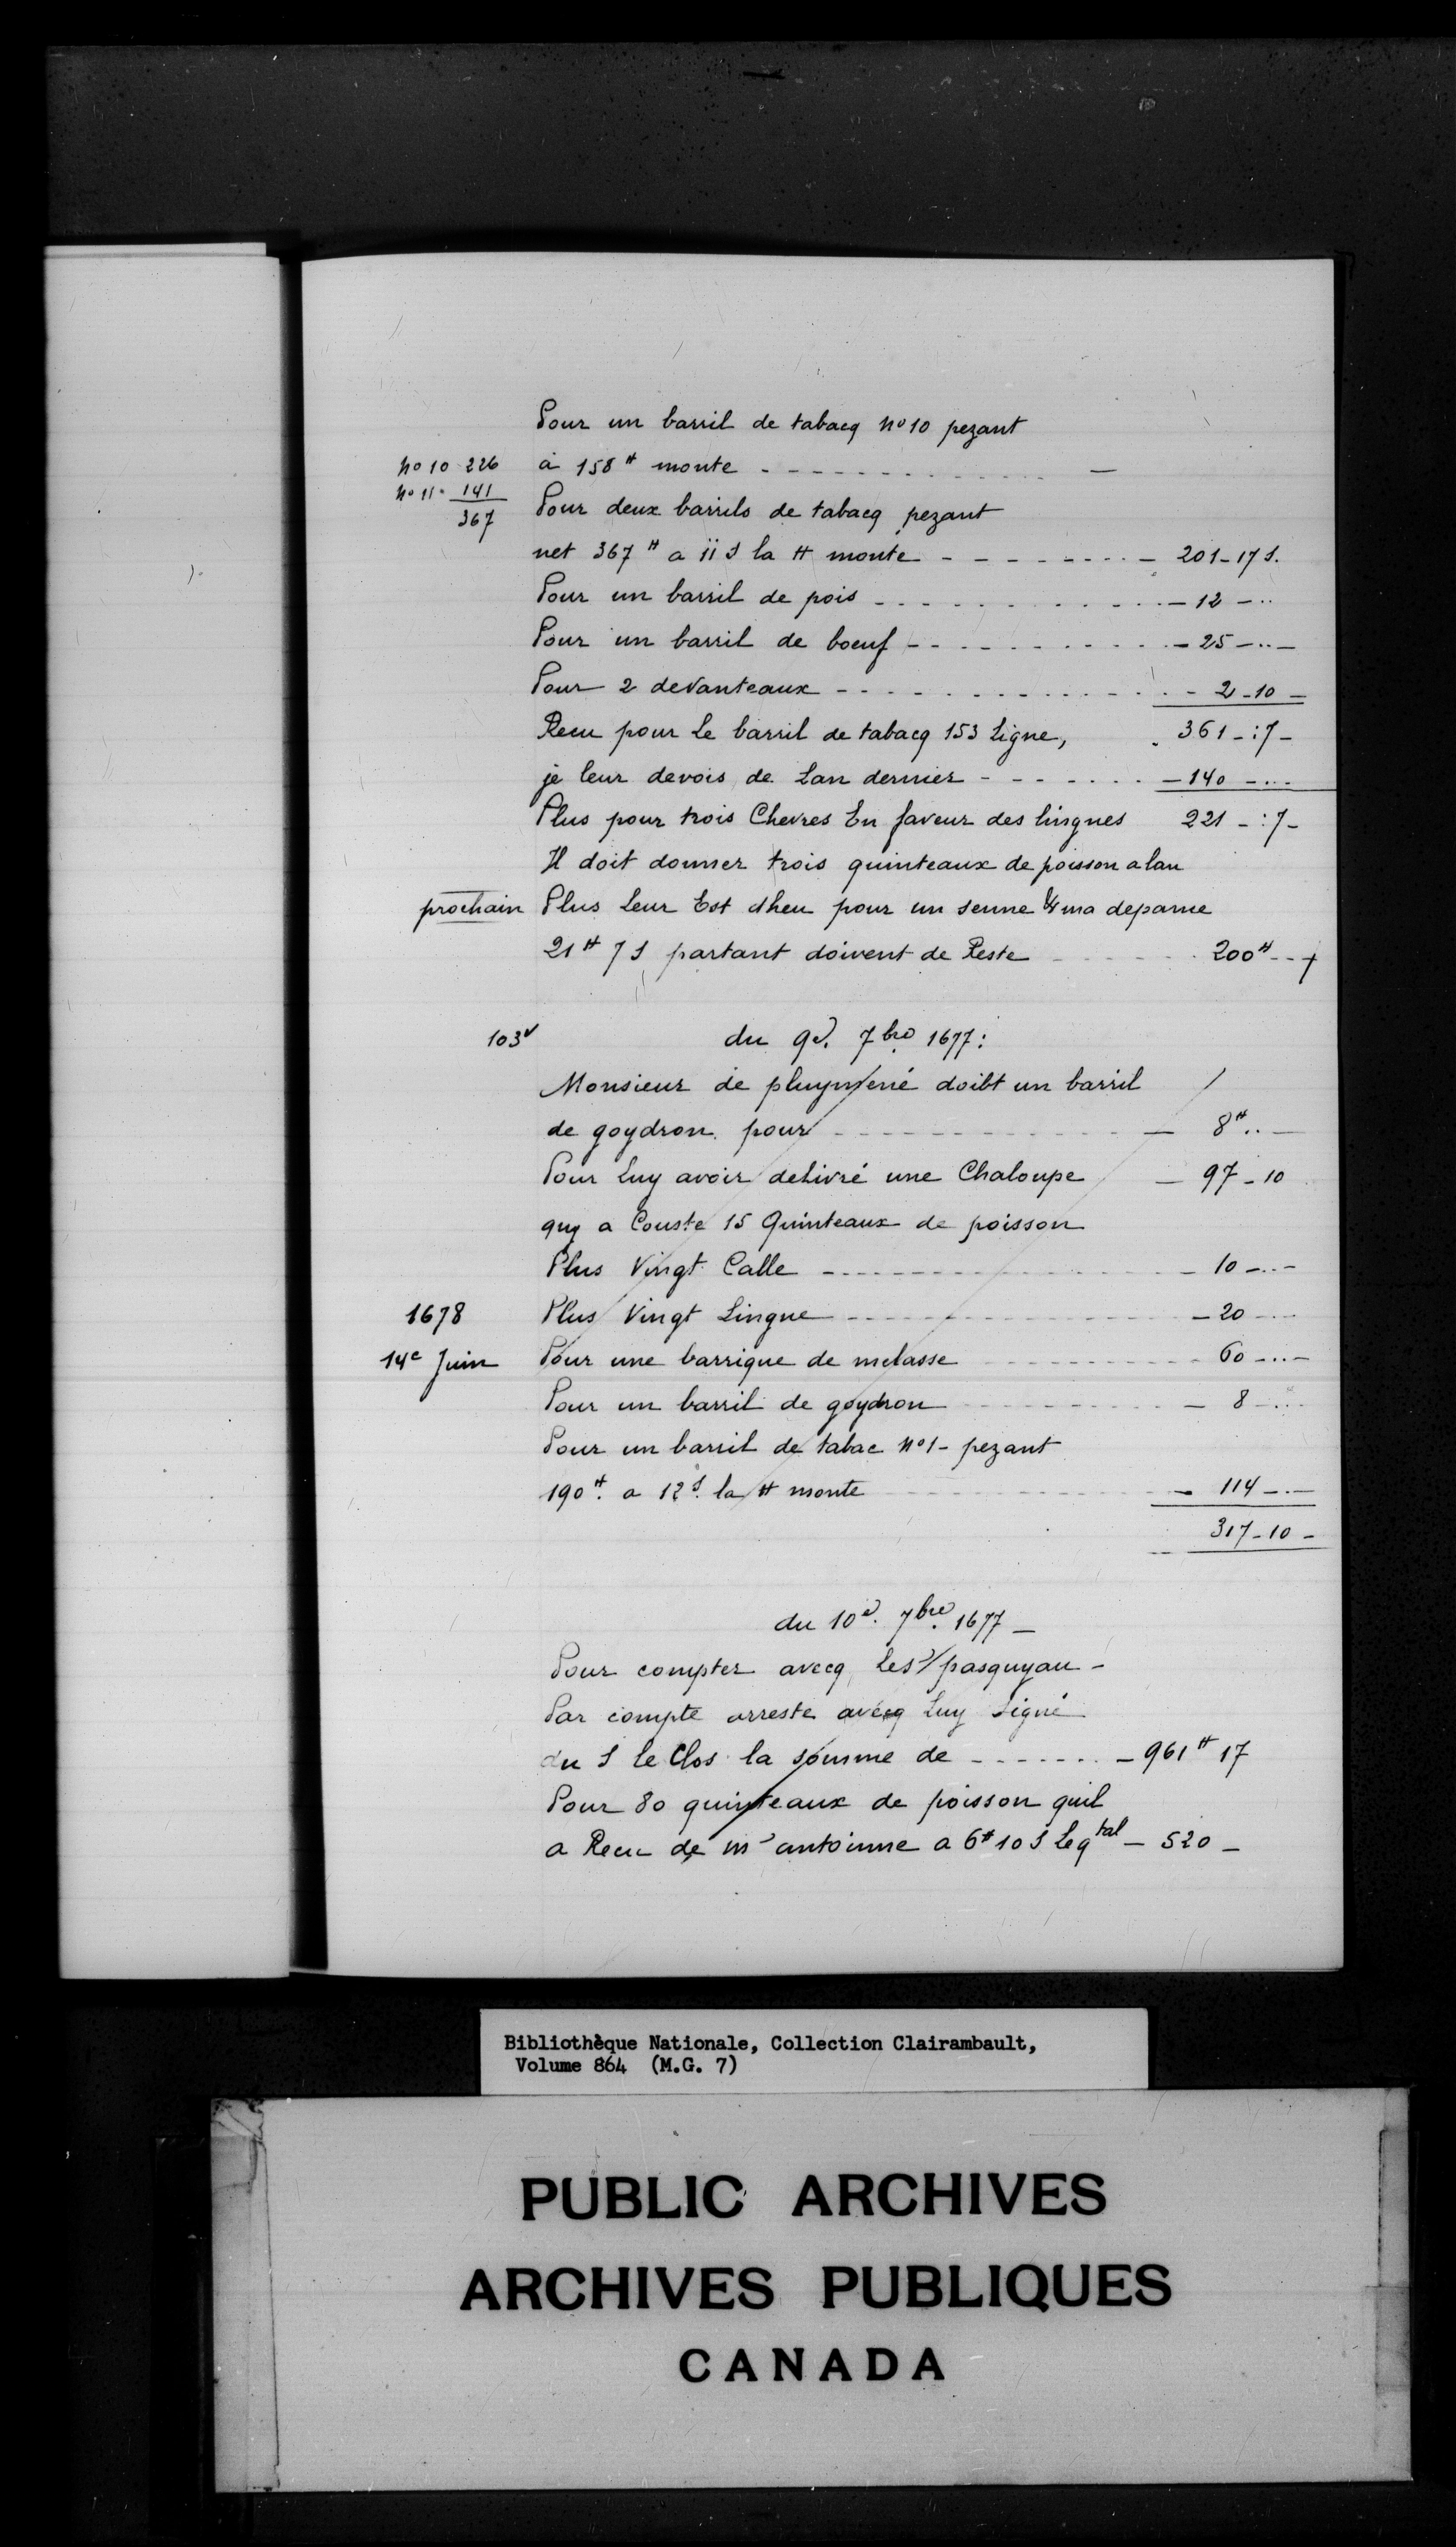 Pour un barril de tabacq No 10 pezant
No 10 226 à 158 # monte - - - - - - - - - —
No 11 141 Pour deux barrils de tabacq pezant
367
net 367 # a ii s la # monte - - - - - - 201 - 17 s.
Pour un barril de pois - - - - - - - - 12 - ..
Pour un barril de boeuf - - - - - - - 25 - .. -
Pour 2 devanteaux - - - - - - - - - 2 - 10 -
Recu pour Le barril de tabacq 153 Ligne, 361 - : 7 -
je leur devois de Lan dernier - - - - - - 140 - ...
Plus pour trois Chevres En faveur des lingnes 221 - : 7 -
Il doit donner trois quinteaux de poisson a lan
prochain Plus Leur Est dheu pour un senne
21 # 7 s partant doivent de Reste - - - - 200 # - -
103v du 9e. 7bre 1677 :
Monsieur de doibt un barril
de goydron pour - - - - - - - - 8 # .. -
Pour Luy avoir delivré une Chaloupe — 97 - 10
quy a Couste 15 Quinteaux de poisson
Plus Vingt Calle - - - - - - - - 10 - ... -
1678 Plus Vingt Lingne - - - - - - - 20 - ...
14e Juin Pour une barrique de melasse - - - - 60 - ... -
Pour un barril de goydron - - - - - 8 - ...
Pour un barril de tabac No 1 - pezant
190 #. a 12 s. la # monte - - - - - 114 - . -
317 - 10 -
du 10e. 7bre. 1677 -
Pour compter avecq Les pasquyau -
Par compte arreste avecq Luy Signé
du S le Clos la somme de - - - - - 961 # 17
Pour 80 quinteaux de poisson quil
a Recu de mr antoinne a 6 # 10 s Leqtal - 520 -
Bibliothèque Nationale, Collection Clairambault,
Volume 864 (M.G. 7)
PUBLIC ARCHIVES
ARCHIVES PUBLIQUES
CANADA